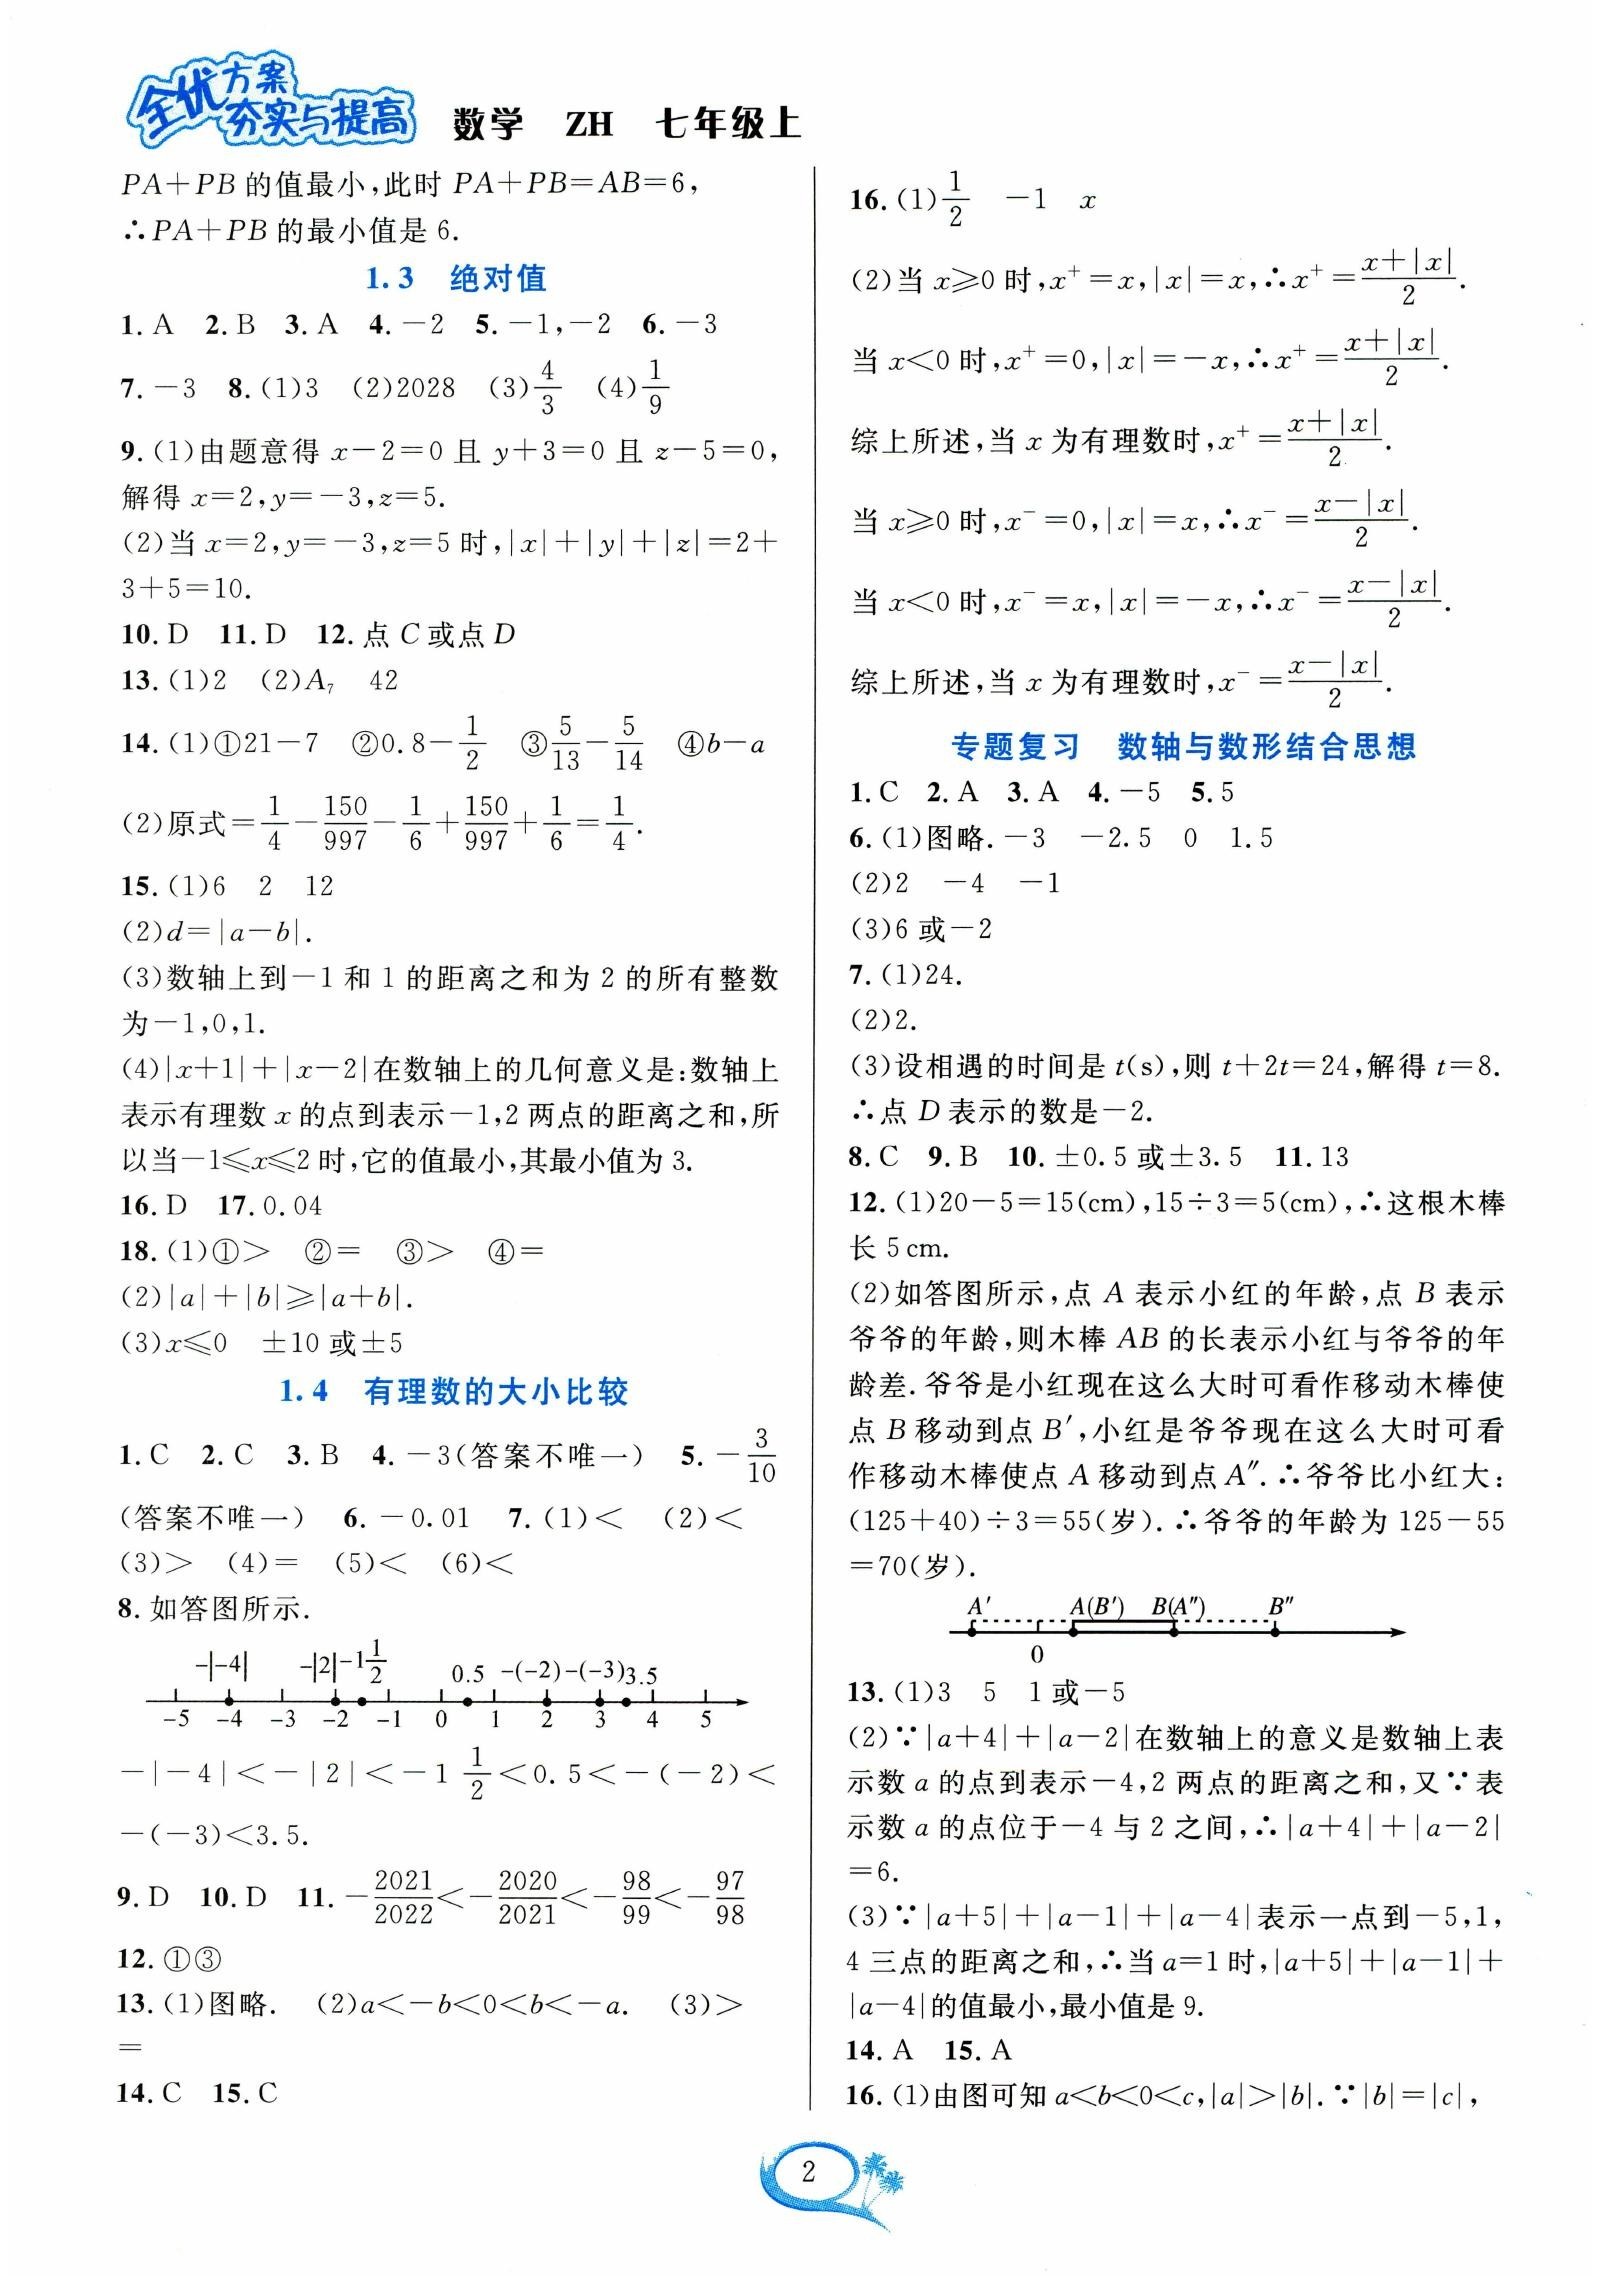 全优方案
夯实与提高 数学 ZH 七年级上
PA+PB 的值最小,此时 PA+PB=AB=6,
∴PA+PB 的最小值是 6.
1.3 绝对值
1. A 2. B 3. A 4. −2 5. −1,−2 6. −3
7. −3 8. (1)3 (2)2028 (3)4/3 (4)1/9
9. (1)由题意得 x−2=0 且 y+3=0 且 z−5=0,
解得 x=2,y=−3,z=5.
(2)当 x=2,y=−3,z=5 时,|x|+|y|+|z|=2+
3+5=10.
10. D 11. D 12. 点 C 或点 D
13. (1)2 (2)A₇ 42
14. (1)①21−7 ②0.8−1/2 ③5/13−5/14 ④b−a
(2)原式=1/4−150/997−1/6+150/997+1/6=1/4.
15. (1)6 2 12
(2)d=|a−b|.
(3)数轴上到−1 和 1 的距离之和为 2 的所有整数
为−1,0,1.
(4)|x+1|+|x−2|在数轴上的几何意义是:数轴上
表示有理数 x 的点到表示−1,2 两点的距离之和,所
以当−1≤x≤2 时,它的值最小,其最小值为 3.
16. D 17. 0.04
18. (1)①> ②= ③> ④=
(2)|a|+|b|≥|a+b|.
(3)x≤0 ±10 或±5
1.4 有理数的大小比较
1. C 2. C 3. B 4. −3(答案不唯一) 5. −3/10
(答案不唯一) 6. −0.01 7. (1)< (2)<
(3)> (4)= (5)< (6)<
8. 如答图所示.
-|-4| -|2| -1 1/2 0.5 -(-2) -(-3) 3.5
-5 -4 -3 -2 -1 0 1 2 3 4 5
−|−4|<−|2|<−1 1/2<0.5<−(−2)<
−(−3)<3.5.
9. D 10. D 11. −2021/2022<−2020/2021<−98/99<−97/98
12. ①③
13. (1)图略. (2)a<−b<0<b<−a. (3)>
=
14. C 15. C
16. (1)1/2 −1 x
(2)当 x≥0 时,x⁺=x,|x|=x,∴x⁺=(x+|x|)/2.
当 x<0 时,x⁺=0,|x|=−x,∴x⁺=(x+|x|)/2.
综上所述,当 x 为有理数时,x⁺=(x+|x|)/2.
当 x≥0 时,x⁻=0,|x|=x,∴x⁻=(x−|x|)/2.
当 x<0 时,x⁻=x,|x|=−x,∴x⁻=(x−|x|)/2.
综上所述,当 x 为有理数时,x⁻=(x−|x|)/2.
专题复习 数轴与数形结合思想
1. C 2. A 3. A 4. −5 5. 5
6. (1)图略. −3 −2.5 0 1.5
(2)2 −4 −1
(3)6 或−2
7. (1)24.
(2)2.
(3)设相遇的时间是 t(s),则 t+2t=24,解得 t=8.
∴点 D 表示的数是−2.
8. C 9. B 10. ±0.5 或±3.5 11. 13
12. (1)20−5=15(cm),15÷3=5(cm),∴这根木棒
长 5 cm.
(2)如答图所示,点 A 表示小红的年龄,点 B 表示
爷爷的年龄,则木棒 AB 的长表示小红与爷爷的年
龄差. 爷爷是小红现在这么大时可看作移动木棒使
点 B 移动到点 B′,小红是爷爷现在这么大时可看
作移动木棒使点 A 移动到点 A″. ∴爷爷比小红大:
(125+40)÷3=55(岁). ∴爷爷的年龄为 125−55
=70(岁).
A′ A(B′) B(A″) B″
0
13. (1)3 5 1 或−5
(2)∵|a+4|+|a−2|在数轴上的意义是数轴上表
示数 a 的点到表示−4,2 两点的距离之和,又∵表
示数 a 的点位于−4 与 2 之间,∴|a+4|+|a−2|
=6.
(3)∵|a+5|+|a−1|+|a−4|表示一点到−5,1,
4 三点的距离之和,∴当 a=1 时,|a+5|+|a−1|+
|a−4|的值最小,最小值是 9.
14. A 15. A
16. (1)由图可知 a<b<0<c,|a|>|b|. ∵|b|=|c|,
2